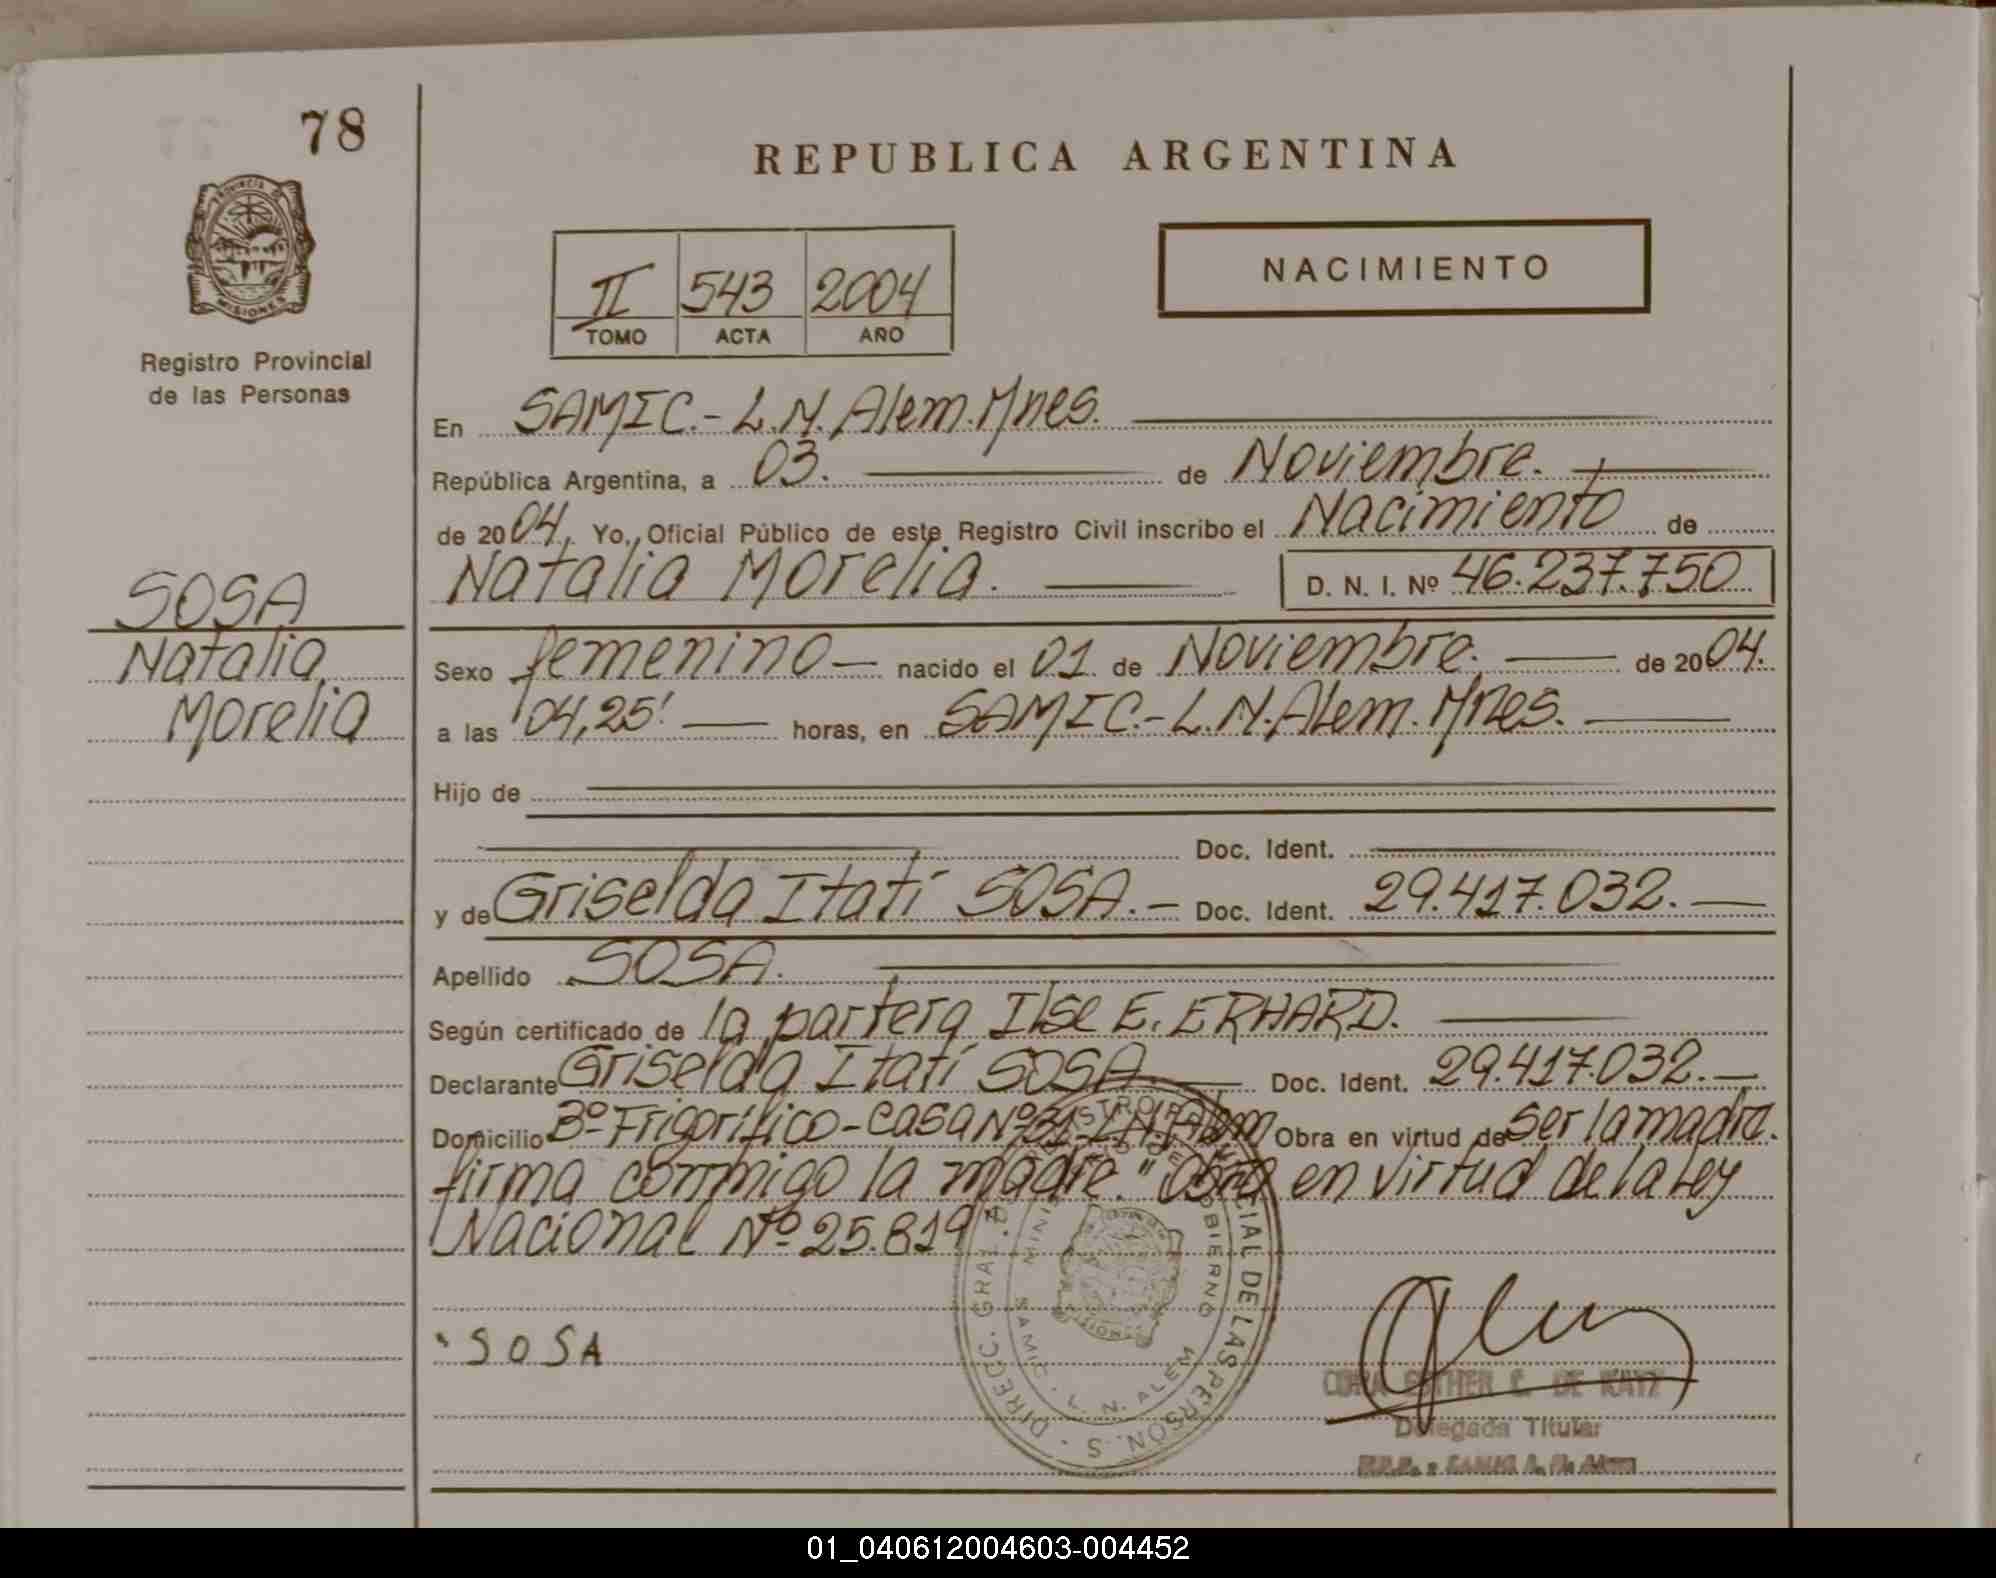 78
REPUBLICA ARGENTINA
PROVINCIA DE
MISIONES
Registro Provincial
de las Personas
NACIMIENTO
II 543 2004
TOMO ACTA AÑO
En SAMIC.- L.N. Alem. Mnes.
República Argentina, a 03. de Noviembre.
de 2004. Yo, Oficial Público de este Registro Civil inscribo el Nacimiento de
Natalia Morelia. D. N. I. Nº 46.237.750
SOSA
Natalia
Morelia
Sexo femenino nacido el 01 de Noviembre. de 2004.
a las 04,25' horas, en SAMIC.- L.N. Alem. Mnes.
Hijo de
Doc. Ident.
y de Griselda Itatí SOSA.- Doc. Ident. 29.417.032.
Apellido SOSA.
Según certificado de la partera Ilse E. ERHARD.
Declarante Griselda Itatí SOSA. Doc. Ident. 29.417.032.
Domicilio Bº Frigorífico - casa Nº 31 - L.N. Alem Obra en virtud de ser la madre.
firma conmigo la madre. "Obra en virtud de la Ley
Nacional Nº 25.819".
SOSA
DIRECC. GRAL. DEL REGISTRO PROVINCIAL DE LAS PERSON. S
GOBIERNO
SAMIC. L. N. ALEM
CORA ESTHER C. DE KATZ
Delegada Titular
R.P.P. - SAMIC L. N. Alem
01_040612004603-004452